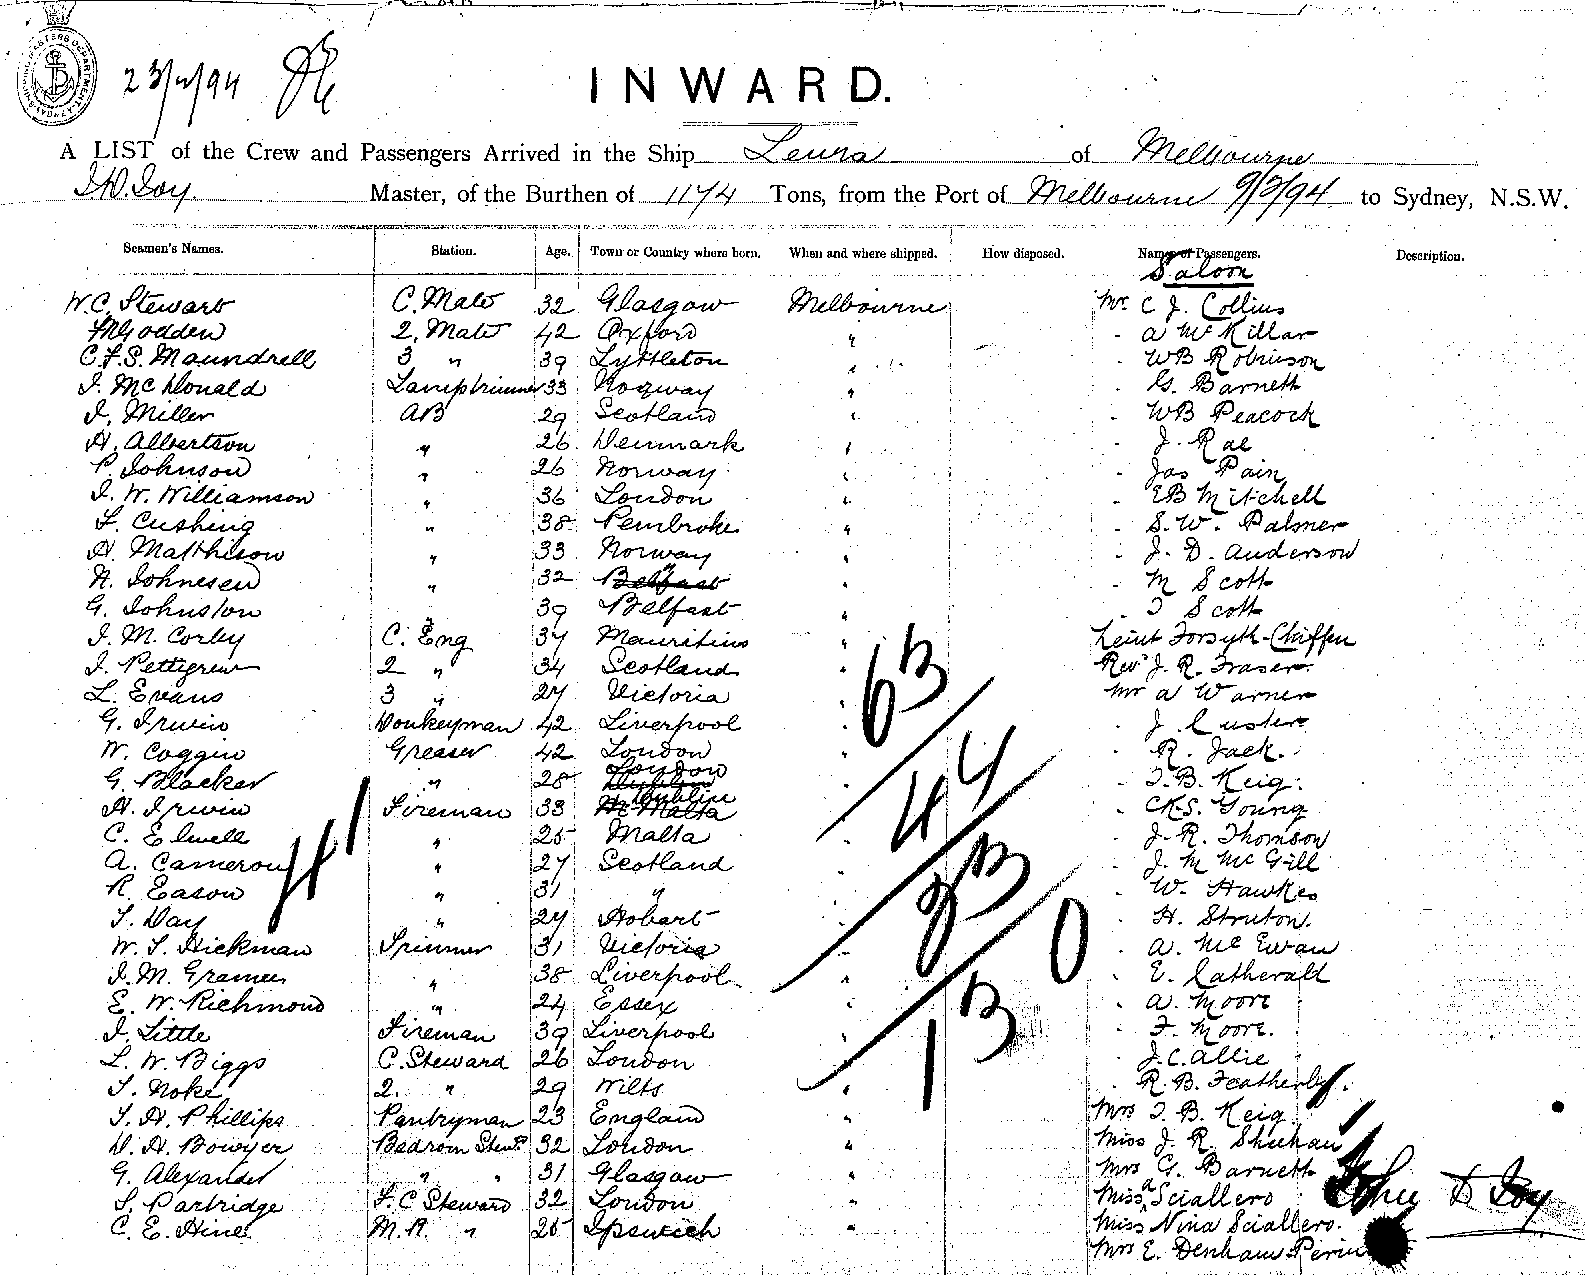 23/2/94
INWARD.
A LIST of the Crew and Passengers Arrived in the Ship Leura of Melbourne
J.D. Joy. Master, of the Burthen of 1174 Tons, from the Port of Melbourne to Sydney, N.S.W.
Seamen's Names. Station. Age. Town or Country where born. When and where shipped. How disposed. Names of Passengers. Description.
Saloon
W.C. Stewart C. Mate 32 Glasgow Melbourne Mr. C J. Collins
Godden 2. Mate 42 Oxford " - A McKillar
C.F.S. Maundrell 3 " 39 Lyttleton " - WB Robinson
J. McDonald Lamptrimmer 33 Norway " - G. Barnett
J. Miller AB 29 Scotland " - WB Peacock
H. Albertson " 26 Denmark " - J. Rae
P. Johnson " 26 Norway " - Jas Pain
J. W. Williamson " 36 London " - EB Mitchell
F. Cushing " 38 Pembroke " - S. W. Palmer
H. Matthison " 33 Norway " - J. D. Anderson
N. Johnesen " 32 " Belfast " - M Scott
G. Johnston " 39 Belfast " - J Scott
J. M. Corley C. Eng 37 Mauritius " Leiut Forsyth-Chaffen
J. Pettigrew 2 " 34 Scotland " Revd J. R. Fraser
L. Evans 3 " 27 Victoria " Mr A Warner
G. Irwin Donkeyman 42 Liverpool " - J. Custer
W. Coggin Greaser 42 London " - R. Jack.
G. Blacker " 28 London Dublin " - J. B. Keig.
H. Irwin Fireman 33 Dublin Malta " - CKS. Young
C. Elwell " 25 Malta " - J. R. Thomson
A. Cameron " 27 Scotland " - J. M McGill
R. Eason " 31 " " - W. Hawkes
T. Day " 27 Hobart " - H. Struton.
W. T. Hickman Trimmer 31 Victoria " - A. McEwan
J. M. " 38 Liverpool " - E. Catherall
E. W. Richmond " 24 Essex " - A. Moore
J. Little Fireman 39 Liverpool " - F. Moore.
L. W. Biggs C. Steward 26 London " - J.C. Allie
T. Noke 2. " 29 Wilts " - R. B. Featherby.
T. H. Phillips Pantryman 23 England " Mrs J. B. Keig
D. H. Bowyer Bedroom Stewd 32 London " Miss J. R. Sheehan
G. Alexander " " 31 Glasgow " Mrs G. Barnett
S. Partridge F. C Steward 32 London " Miss A Sciallero
C. E. Hine M. R. " 25 Ipswich " Miss Nina Sciallero.
Mrs E. Denham
41
63
44
8B
0
1B
John D Joy